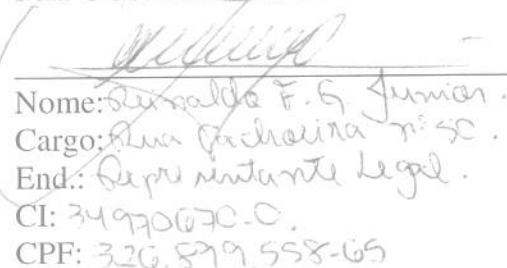 Nome: Reinaldo F. G. Junior.
Cargo: Rua Cachoeira nº 50.
End.: Representante Legal.
CI: 34970670-0.
CPF: 326.899.558-65